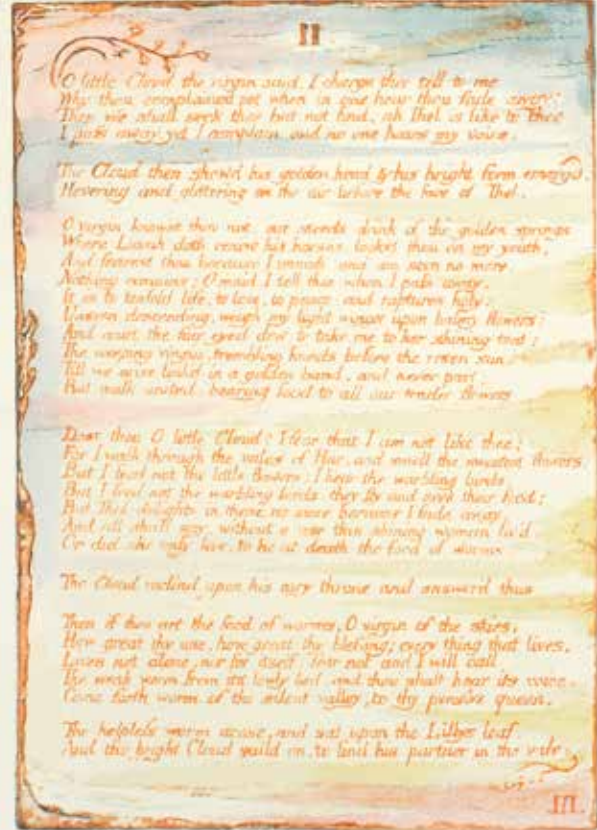 II
O little Cloud the virgin said, I charge thee tell to me
Why thou complainest not when in one hour thou fade away:
Then we shall seek thee but not find, ah Thel is like to Thee
I pass away, yet I complain, and no one hears my voice.
The Cloud then shew'd his golden head & his bright form emerg'd.
Hovering and glittering on the air before the face of Thel.
O virgin know'st thou not our steeds drink of the golden springs
Where Luvah doth renew his horses: look'st thou on my youth,
And fearest thou because I vanish and am seen no more
Nothing remains; O maid I tell thee when I pass away,
It is to tenfold life, to love, to peace, and raptures holy:
Unseen descending, weigh my light wings upon balmy flowers;
And court the fair eyed dew to take me to her shining tent;
The weeping virgin, trembling kneels before the risen sun
Till we arise link'd in a golden band, and never part;
But walk united, bearing food to all our tender flowers
Dost thou O little Cloud? I fear that I am not like thee;
For I walk through the vales of Har, and smell the sweetest flowers
But I feed not the little flowers: I hear the warbling birds
But I feed not the warbling birds. they fly and seek their food;
But Thel delights in these no more because I fade away
And all shall say, without a use this shining woman liv'd
Or did she only live, to be at death the food of worms
The Cloud reclind upon his airy throne and answerd thus
Then if thou art the food of worms, O virgin of the skies,
How great thy use, how great thy blessing, every thing that lives,
Lives not alone, nor for itself: fear not and I will call
The weak worm from its lowly bed and thou shalt hear its voice.
Come forth worm of the silent valley, to thy pensive queen.
The helpless worm arose, and sat upon the Lillys leaf
And the bright Cloud saild on, to find his partner in the vale
III.